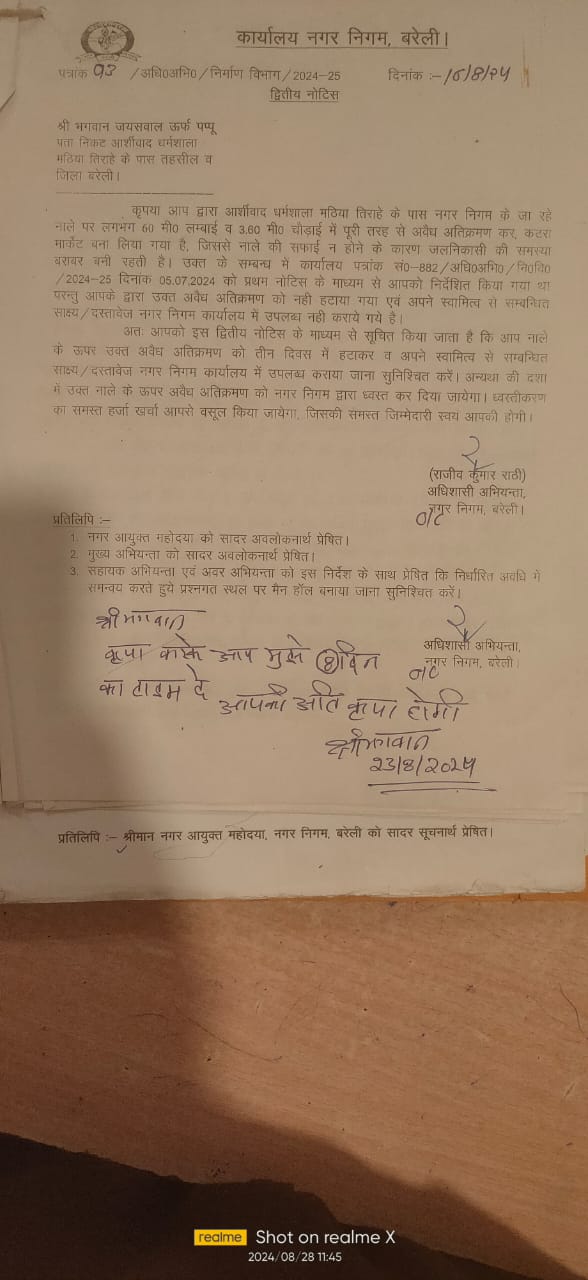 कार्यालय नगर निगम, बरेली।
पत्रांक 93 /अधि0अभि0/निर्माण विभाग/2024-25 दिनांक :–
द्वितीय नोटिस
श्री भगवान जयसवाल ऊर्फ पप्पू
पता निकट आर्शीवाद धर्मशाला
मठिया तिराहे के पास तहसील व
जिला बरेली।
कृपया आप द्वारा आर्शीवाद धर्मशाला मठिया तिराहे के पास नगर निगम के जा रहे
नाले पर लगभग 60 मी0 लम्बाई व 3.60 मी0 चौड़ाई में पूरी तरह से अवैध अतिक्रमण कर, कटरा
मार्केट बना लिया गया है, जिससे नाले की सफाई न होने के कारण जलनिकासी की समस्या
बराबर बनी रहती है। उक्त के सम्बन्ध में कार्यालय पत्रांक सं0-882/अधि0अभि0/नि0वि0
/2024-25 दिनांक 05.07.2024 को प्रथम नोटिस के माध्यम से आपको निर्देशित किया गया था
परन्तु आपके द्वारा उक्त अवैध अतिक्रमण को नही हटाया गया एवं अपने स्वामित्व से सम्बन्धित
साक्ष्य/दस्तावेज नगर निगम कार्यालय में उपलब्ध नही कराये गये है।
अतः आपको इस द्वितीय नोटिस के माध्यम से सूचित किया जाता है कि आप नाले
के ऊपर उक्त अवैध अतिक्रमण को तीन दिवस में हटाकर व अपने स्वामित्व से सम्बन्धित
साक्ष्य/दस्तावेज नगर निगम कार्यालय में उपलब्ध कराया जाना सुनिश्चित करें। अन्यथा की दशा
में उक्त नाले के ऊपर अवैध अतिक्रमण को नगर निगम द्वारा ध्वस्त कर दिया जायेगा। ध्वस्तीकरण
का समस्त हर्जा खर्चा आपसे वसूल किया जायेगा, जिसकी समस्त जिम्मेदारी स्वयं आपकी होगी।
(राजीव कुमार राठी)
अधिशासी अभियन्ता,
नगर निगम, बरेली।
प्रतिलिपि :–
1. नगर आयुक्त महोदया को सादर अवलोकनार्थ प्रेषित।
2. मुख्य अभियन्ता को सादर अवलोकनार्थ प्रेषित।
3. सहायक अभियन्ता एवं अवर अभियन्ता को इस निर्देश के साथ प्रेषित कि निर्धारित अवधि में
समन्वय करते हुये प्रश्नगत स्थल पर मैन हॉल बनाया जाना सुनिश्चित करें।
श्री भगवान
अधिशासी अभियन्ता,
नगर निगम, बरेली।
कृपा करके आप मुझे 8 दिन
का टाइम दे आपकी अति कृपा होगी
श्रीभगवान
23/8/2024
प्रतिलिपि :– श्रीमान नगर आयुक्त महोदया, नगर निगम, बरेली को सादर सूचनार्थ प्रेषित।
realme Shot on realme X
2024/08/28 11:45